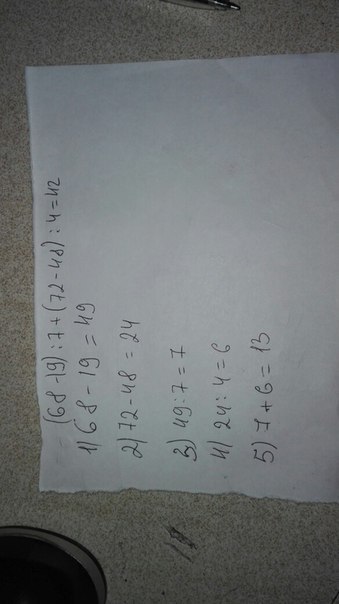 (68-19):7+(72-48):4=42
1) 68-19=49
2) 72-48=24
3) 49:7=7
4) 24:4=6
5) 7+6=13